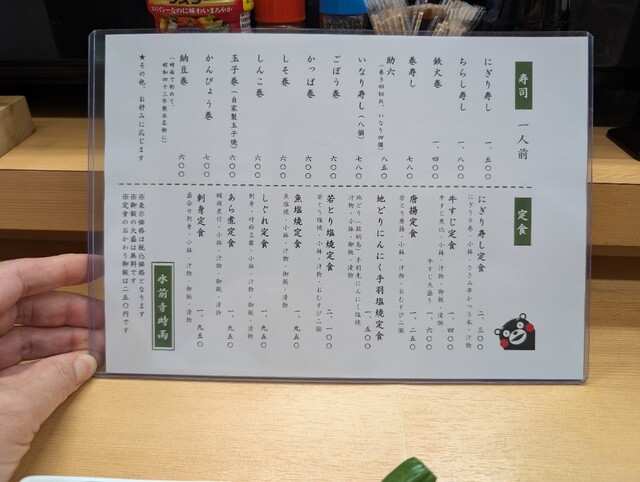 寿司 一人前
にぎり寿し 一、五〇〇
ちらし寿し 一、八〇〇
鉄火巻 一、四〇〇
巻寿し 七八〇
助六 八五〇
(巻き四切れ、いなり四個)
いなり寿し(八個) 七八〇
ごぼう巻 六〇〇
かっぱ巻 六〇〇
しそ巻 六〇〇
しんこ巻 六〇〇
玉子巻(自家製玉子焼) 六〇〇
かんぴょう巻 七〇〇
納豆巻 六〇〇
★その他、お好みに応じます
定食
にぎり寿し定食 二、三〇〇
牛すじ定食 一、四〇〇
牛すじ煮込・小鉢・汁物・御飯・漬物
牛すじ大盛り 一、六〇〇
唐揚定食 一、二五〇
若とり唐揚・小鉢・汁物・おむすび二個
地どりにんにく手羽塩焼定食 一、五〇〇
汁物・小鉢・御飯・漬物
若とり塩焼定食 二、一〇〇
若とり塩焼・小鉢・汁物・おむすび二個
魚塩焼定食 一、九五〇
魚塩焼・小鉢・汁物・御飯・漬物
しぐれ定食 一、九五〇
あら煮定食 一、九五〇
刺身定食 一、九五〇
盛合せ刺身・小鉢・汁物・御飯・漬物
水前寺時雨
※表示価格は税込価格となります
※御飯の大盛は無料です
※定食のおかわり御飯は二五〇円です